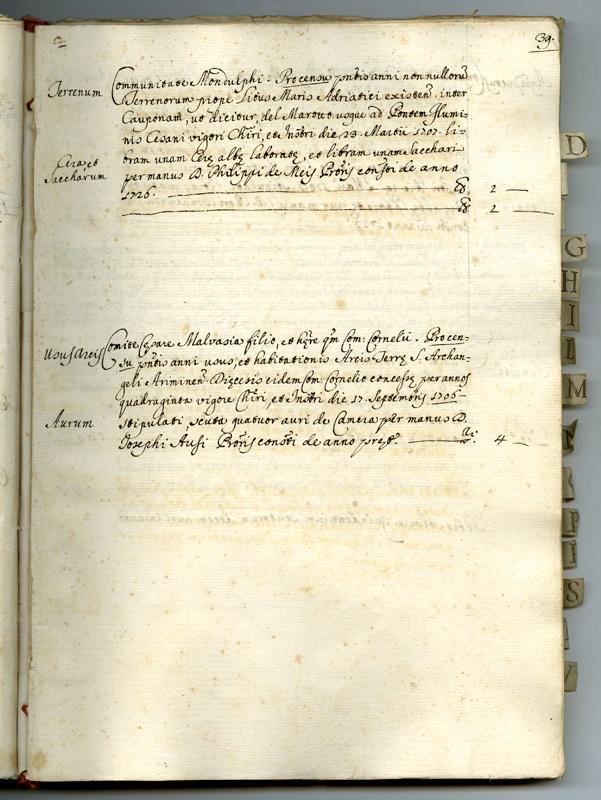 C
39.
Terrenum
Communitate Mondulphi. Pro censu pñtis anni nonnullorũ
Terrenorum prope Litus Maris Adriatici existen. inter
Cauponam, ut dicitur, del Marotto usque ad Pontem Flumi-
nis Cesani vigore Chiri, et Instri die 23. Martii 1707. li-
bram unam Ceræ albæ laboratæ, et libram unam Sacchari
Cera, et
Saccharum
per manus D. Philippi de Meis Proris constti de anno
1726. — lb 2 —
lb 2 —
Usus Arcis
Comite Cesare Malvasia filio, et hęre qm Com: Cornelii. Pro cen-
su pñtis anni usus, et habitationis Arcis Terræ S. Archan-
geli Ariminen. Diecesis eidem Com: Cornelio concessæ per annos
quadraginta vigore Chiri, et Instri die 17. Septembris 1706
Aurum
stipulati, scuta quatuor auri de Camera per manus D.
Josephi Ausi Proris constti de anno prefto. — 4 —
D
G
H
I
L
M
P
I
S
V